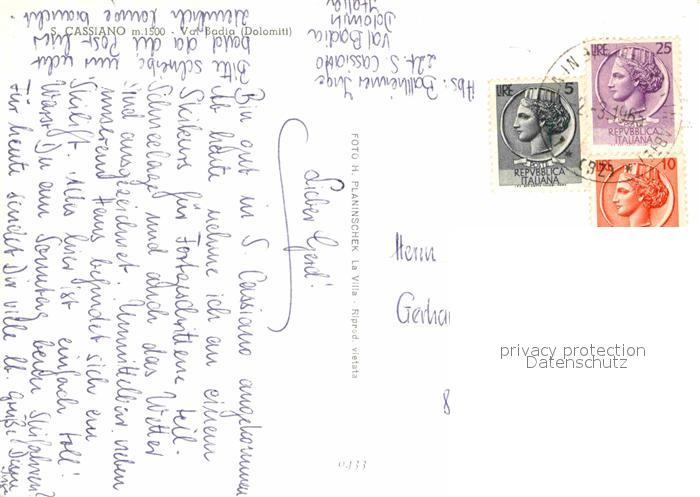 S. CASSIANO m.1500 - Val Badia (Dolomiti)
Abs: Inge
z.Zt. S. Cassiano
Val Badia
Dolomiti
Italia
Lieber Gerd!
Bin gut in S. Cassiano angekommen
Ab heute nehme ich an einem
Skikurs für Fortgeschrittene teil.
Schneelage und auch das Wetter
sind ausgezeichnet. Unmittelbar neben
unserem Haus befindet sich ein
Skilift. Also hier ist einfach toll!
Warst Du am Sonntag beim Skifahren?
Für heute sendet Dir viele lb. Grüße Deine
Inge
Bitte schreibe mir recht
bald da die Post hier
ziemlich lange braucht
FOTO H. PLANINSCHEK La Villa - Riprod. vietata
LIRE 5
POSTE
REPVBBLICA
ITALIANA
LIRE 25
REPVBBLICA
ITALIANA
LIRE 10
Herrn
Gerha
8
privacy protection
Datenschutz
0133